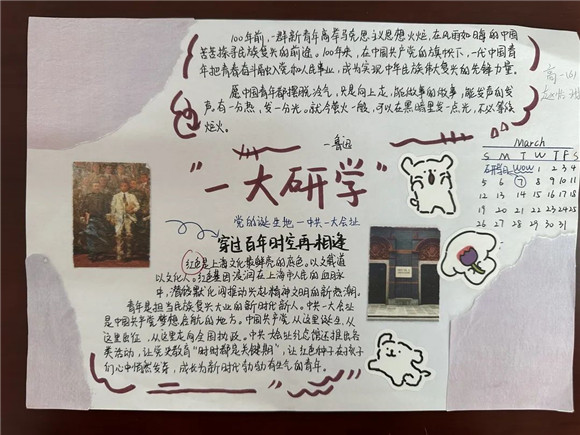 100年前,一群新青年高举马克思主义思想火炬,在风雨如晦的中国
苦苦探寻民族复兴的前途。100年来,在中国共产党的旗帜下,一代代中国青
年把青春奋斗融入党和人民事业,成为实现中华民族伟大复兴的先锋力量。
愿中国青年都摆脱冷气,只是向上走,能做事的做事,能发声的发
声。有一分热,发一分光。就令萤火一般,可以在黑暗里发一点光,不必等候
炬火。
—鲁迅
高一
"一大研学"
党的诞生地—中共一大会址
穿过百年时空再相逢
March
S M T W T F S
研学日 WOW 1 2 3 4
5 6 7 8 9 10 11
12 13 14 15 16 17 18
19 20 21 22 23 24 25
26 27 28 29 30 31
红色是上海文化最鲜亮的底色。以文载道
以文化人。红色基因浸润在上海市人民的血脉
中,潜移默化间推动兴起精神文明的新热潮。
青年是担当民族复兴大业的新时代新人。中共一大会址
是中国共产党梦想启航的地方。中国共产党从这里诞生,从
这里出征,从这里走向全国执政。中共一大会址纪念馆还推出各
类活动,让党史教育"时时都是关键期",让红色种子在孩子
们心中悄然发芽,成长为新时代勃勃有生气的青年。